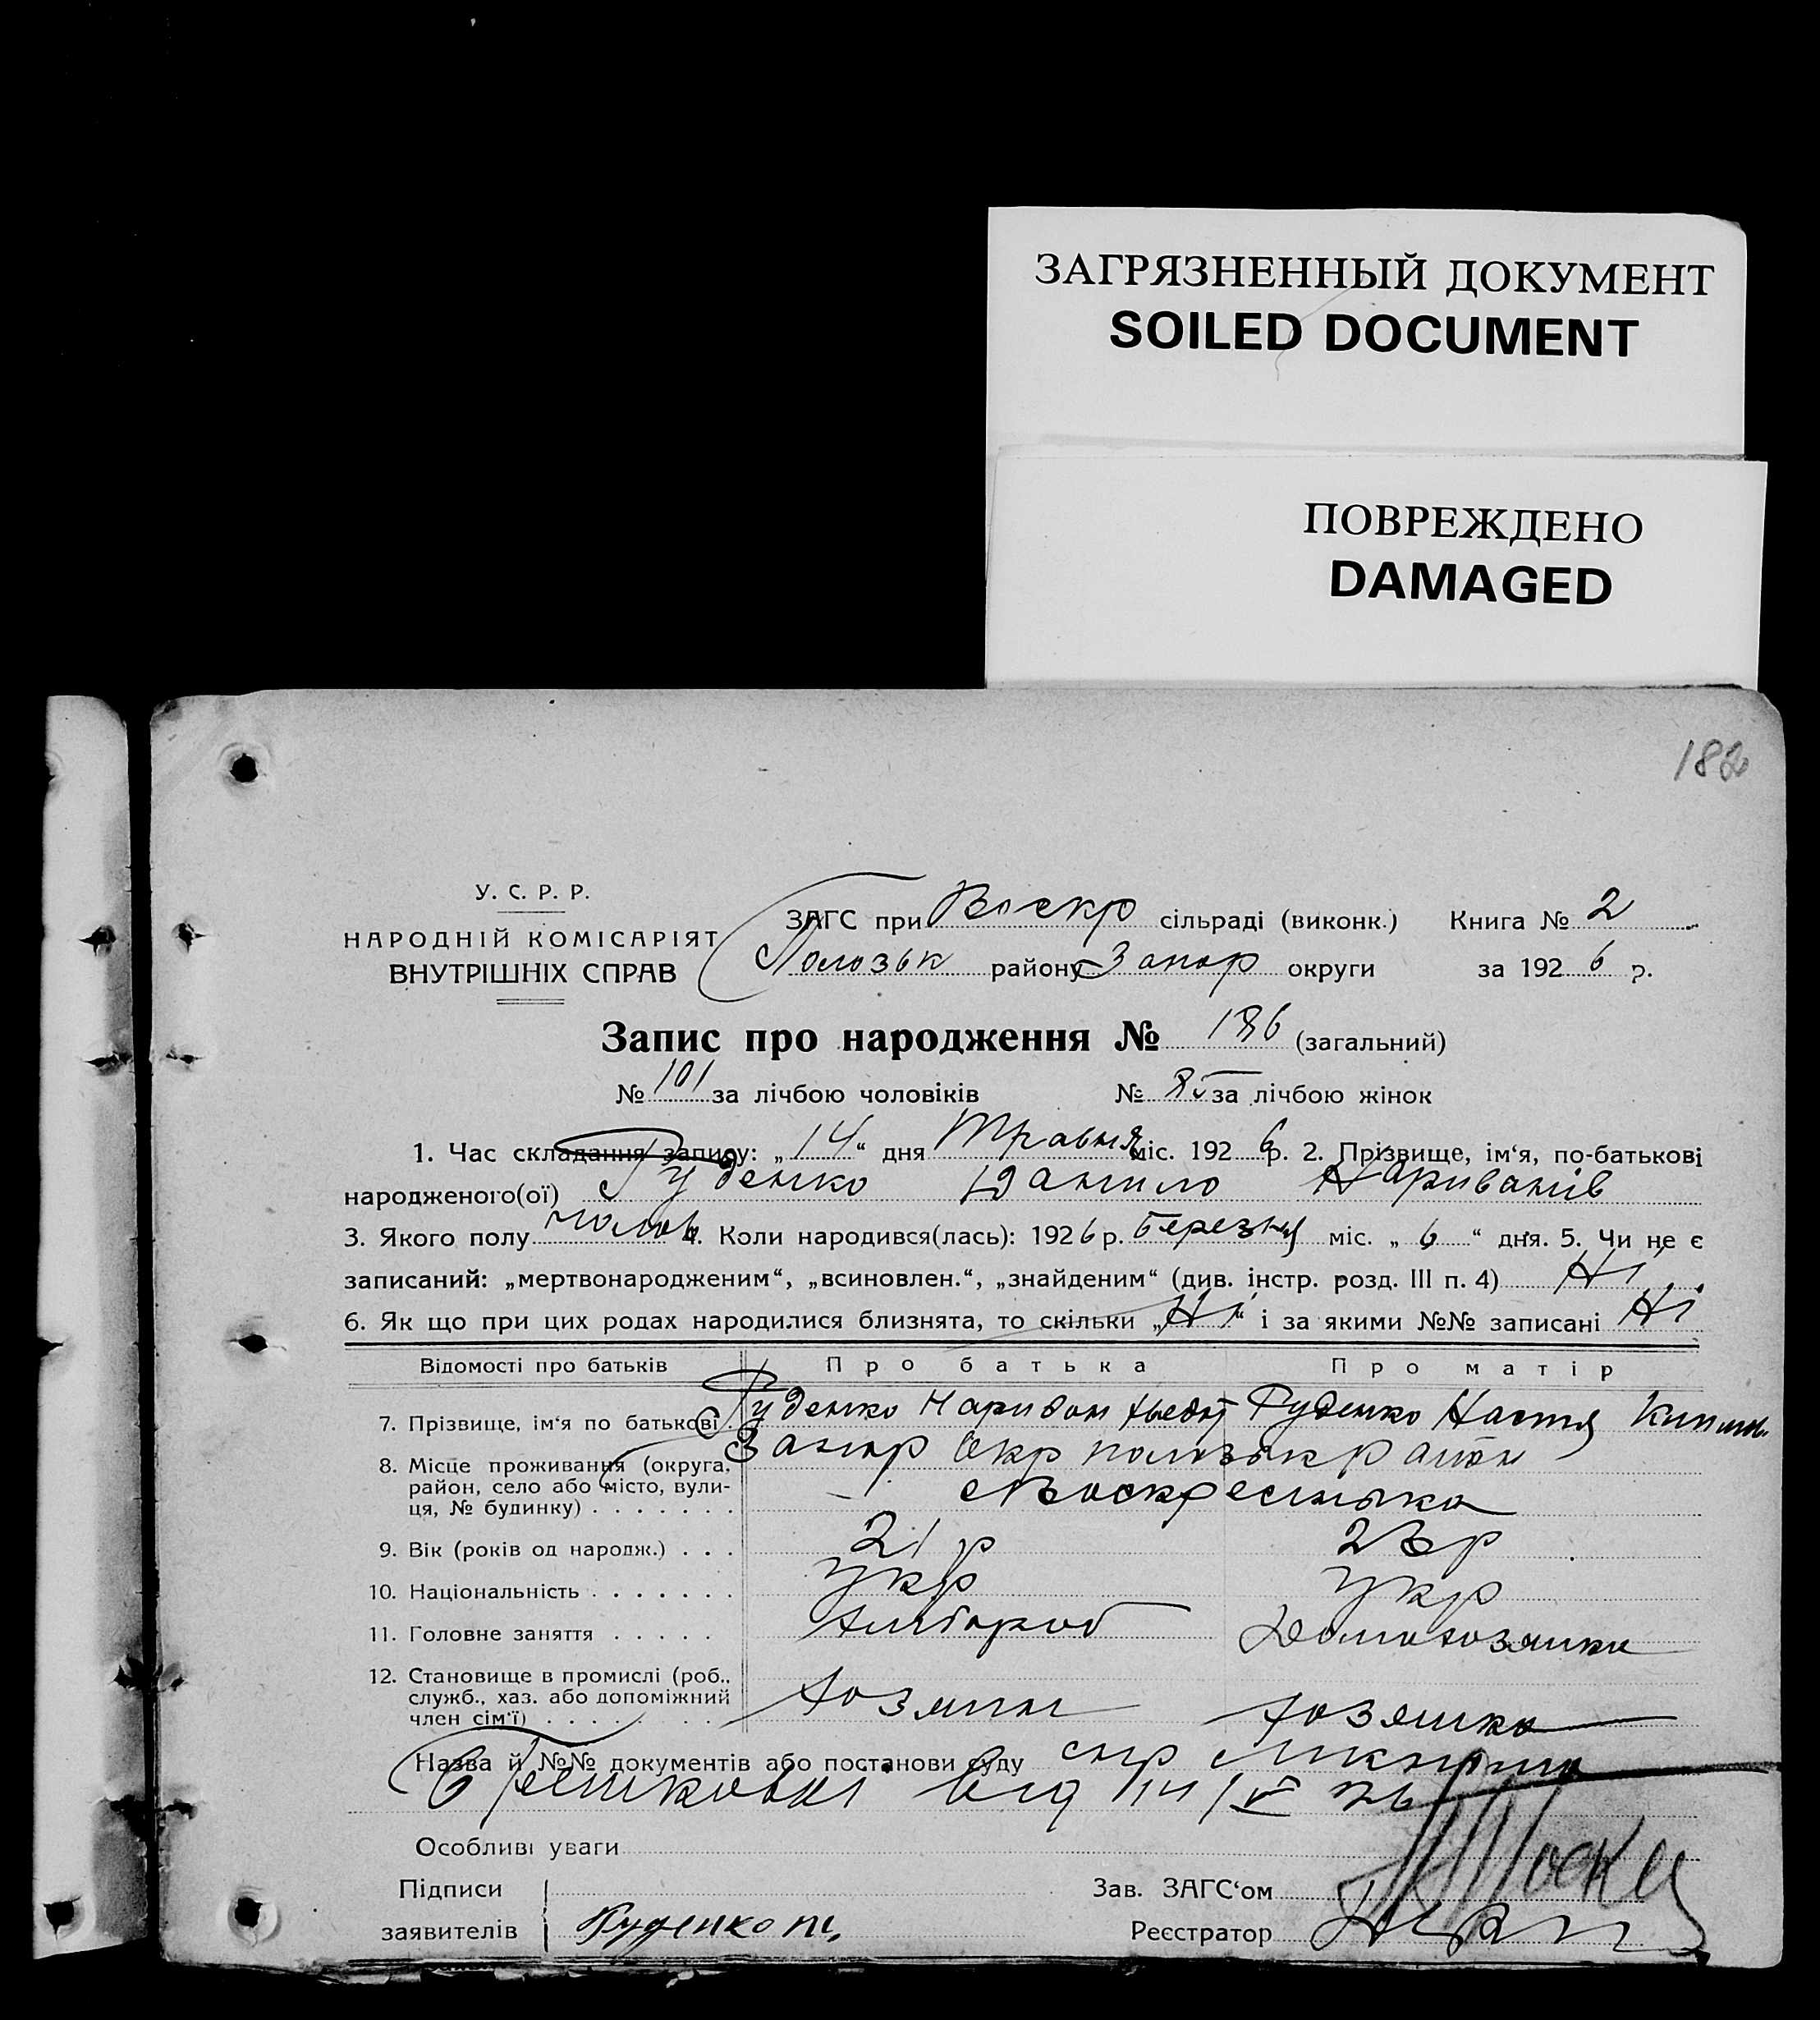 ЗАГРЯЗНЕННЫЙ ДОКУМЕНТ
SOILED DOCUMENT
ПОВРЕЖДЕНО
DAMAGED
182
У. С. Р. Р.
НАРОДНІЙ КОМІСАРІЯТ
ВНУТРІШНІХ СПРАВ
ЗАГС при Воскр сільраді (виконк.) Книга № 2
Полозьк району Запор округи за 1926 р.
Запис про народження № 186 (загальний)
№ 101 за лічбою чоловіків № 85 за лічбою жінок
1. Час складання запису: „14“ дня Травня міс. 1926 р. 2. Прізвище, ім‘я, по-батькові
народженого(ої) Руденко Данило
3. Якого полу чолов 4. Коли народився(лась): 1926 р. березня міс. „6“ дня. 5. Чи не є
записаний: „мертвонародженим“, „всиновлен.“, „знайденим“ (див. інстр. розд. III п. 4) Ні
6. Як що при цих родах народилися близнята, то скільки „Ні“ і за якими №№ записані Ні
Відомості про батьків Про батька Про матір
7. Прізвище, ім‘я по батькові Руденко Руденко Настя
8. Місце проживання (округа, район, село або місто, вулиця, № будинку) Запор Окр полозьк район
с Воскресенька
9. Вік (років од народж.) 21 р 23 р
10. Національність укр укр
11. Головне заняття хлібороб Домохозяйка
12. Становище в промислі (роб., служб., хаз. або допоміжний член сім‘ї) хозяин хозяйка
Назва й №№ документів або постанови суду
від 14/V 26
Особливі уваги
Підписи
заявителів Руденко
Зав. ЗАГС‘ом
Реєстратор